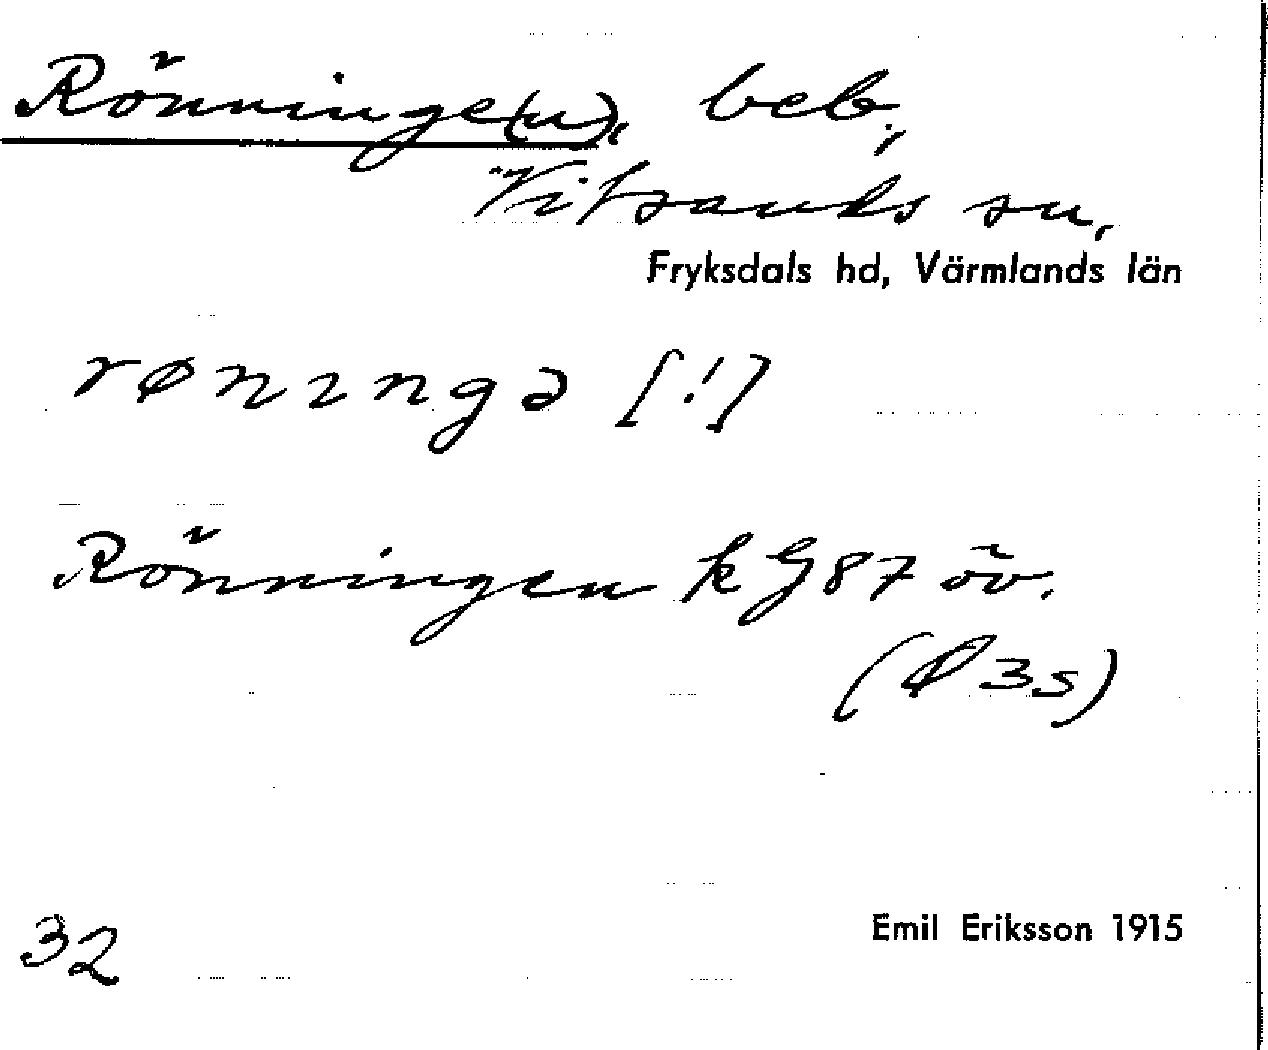 Rönninge(n), beb.,
Vitsands sn,
Fryksdals hd, Värmlands län
rønıngə [!]
Rönningen k G87 öv.
(Ø 3s)
32
Emil Eriksson 1915